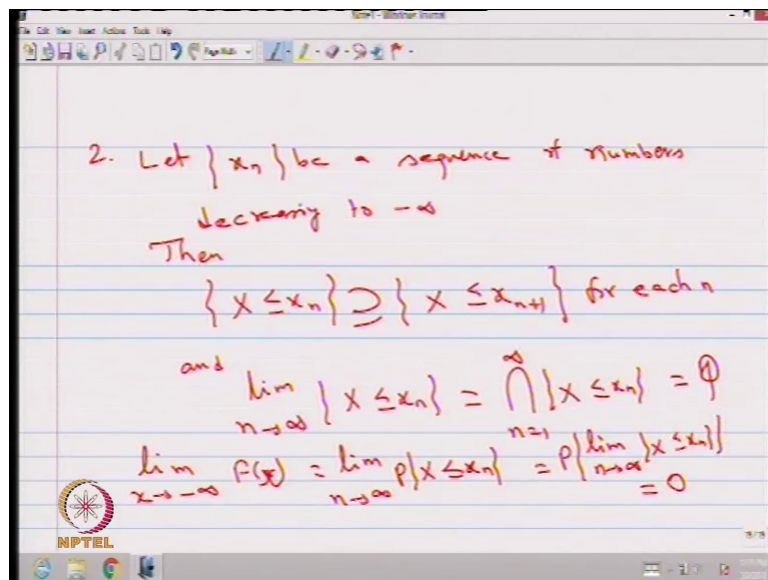 Note1 - Windows Journal
File Edit View Insert Actions Tools Help
Page Width
2. Let {xₙ} be a sequence of numbers
decreasing to -∞
Then
{X ≤ xₙ} ⊇ {X ≤ xₙ₊₁} for each n
and lim_{n→∞} {X ≤ xₙ} = ⋂_{n=1}^{∞} {X ≤ xₙ} = φ
lim_{x→-∞} F(x) = lim_{n→∞} P{X ≤ xₙ} = P{lim_{n→∞} {X ≤ xₙ}}
= 0
NPTEL